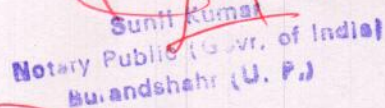 Sunil Kumar
Notary Public (Govr. of India)
Bulandshahr (U. P.)